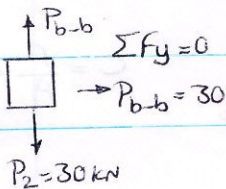 P_b-b
ΣFy = 0
→ P_b-b = 30
P_2 = 30 KN